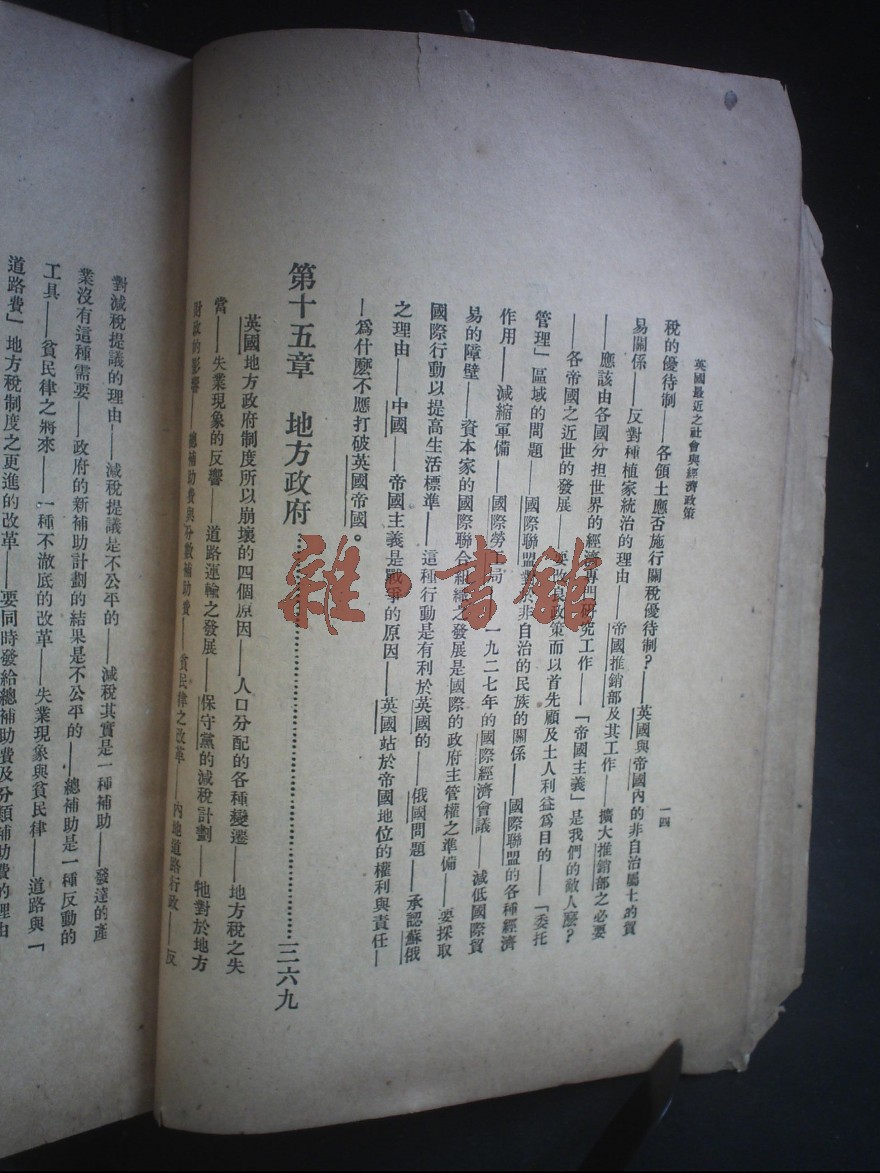 英國最近之社會與經濟政策
一四
稅的優待制——各領土應否施行關稅優待制？——英國與帝國內的非自治屬土的貿
易關係——反對種植家統治的理由——帝國推銷部及其工作——擴大推銷部之必要
——應該由各國分担世界的經濟專門研究工作——「帝國主義」是我們的敵人麽？
——各帝國之近世的發展——要 政策而以首先顧及土人利益爲目的——「委托
管理」區域的問題——國際聯盟對於非自治的民族的關係——國際聯盟的各種經濟
作用——減縮軍備——國際勞工局——一九二七年的國際經濟會議——減低國際貿
易的障壁——資本家的國際聯合組織之發展是國際的政府主管權之準備——要採取
國際行動以提高生活標準——這種行動是有利於英國的——俄國問題——承認蘇俄
之理由——中國——帝國主義是戰爭的原因——英國站於帝國地位的權利與責任—
—爲什麽不應打破英國帝國。
第十五章 地方政府……………………三六九
英國地方政府制度所以崩壞的四個原因——人口分配的各種變遷——地方稅之失
當——失業現象的反響——道路運輸之發展——保守黨的減稅計劃——牠對於地方
財政的影響——總補助費與分數補助費——貧民律之改革——內地道路行政——反
對減稅提議的理由——減稅提議是不公平的——減稅其實是一種補助——發達的產
業沒有這種需要——政府的新補助計劃的結果是不公平的——總補助是一種反動的
工具——貧民律之將來——一種不澈底的改革——失業現象與貧民律——道路與「
道路費」地方稅制度之更進的改革——要同時發給總補助費及分類補助費的理由
雜·書館